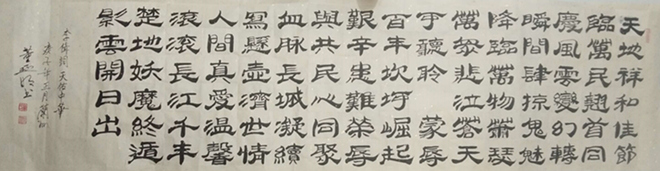 天地祥和佳節
臨萬民翹首同
慶風雲變幻轉
瞬間肆掠鬼魅
降臨萬物蕭瑟
黎悲泣蒼天
可聽聆 蒙辱
百年坎坷崛起
艱辛患難榮辱
與共民心同聚
血脈長城凝續
寫懸壺濟世情
人間真愛溫馨
滾滾長江千年
楚地妖魔終遁
影雲開日出
詞天佑中華
庚子年正月